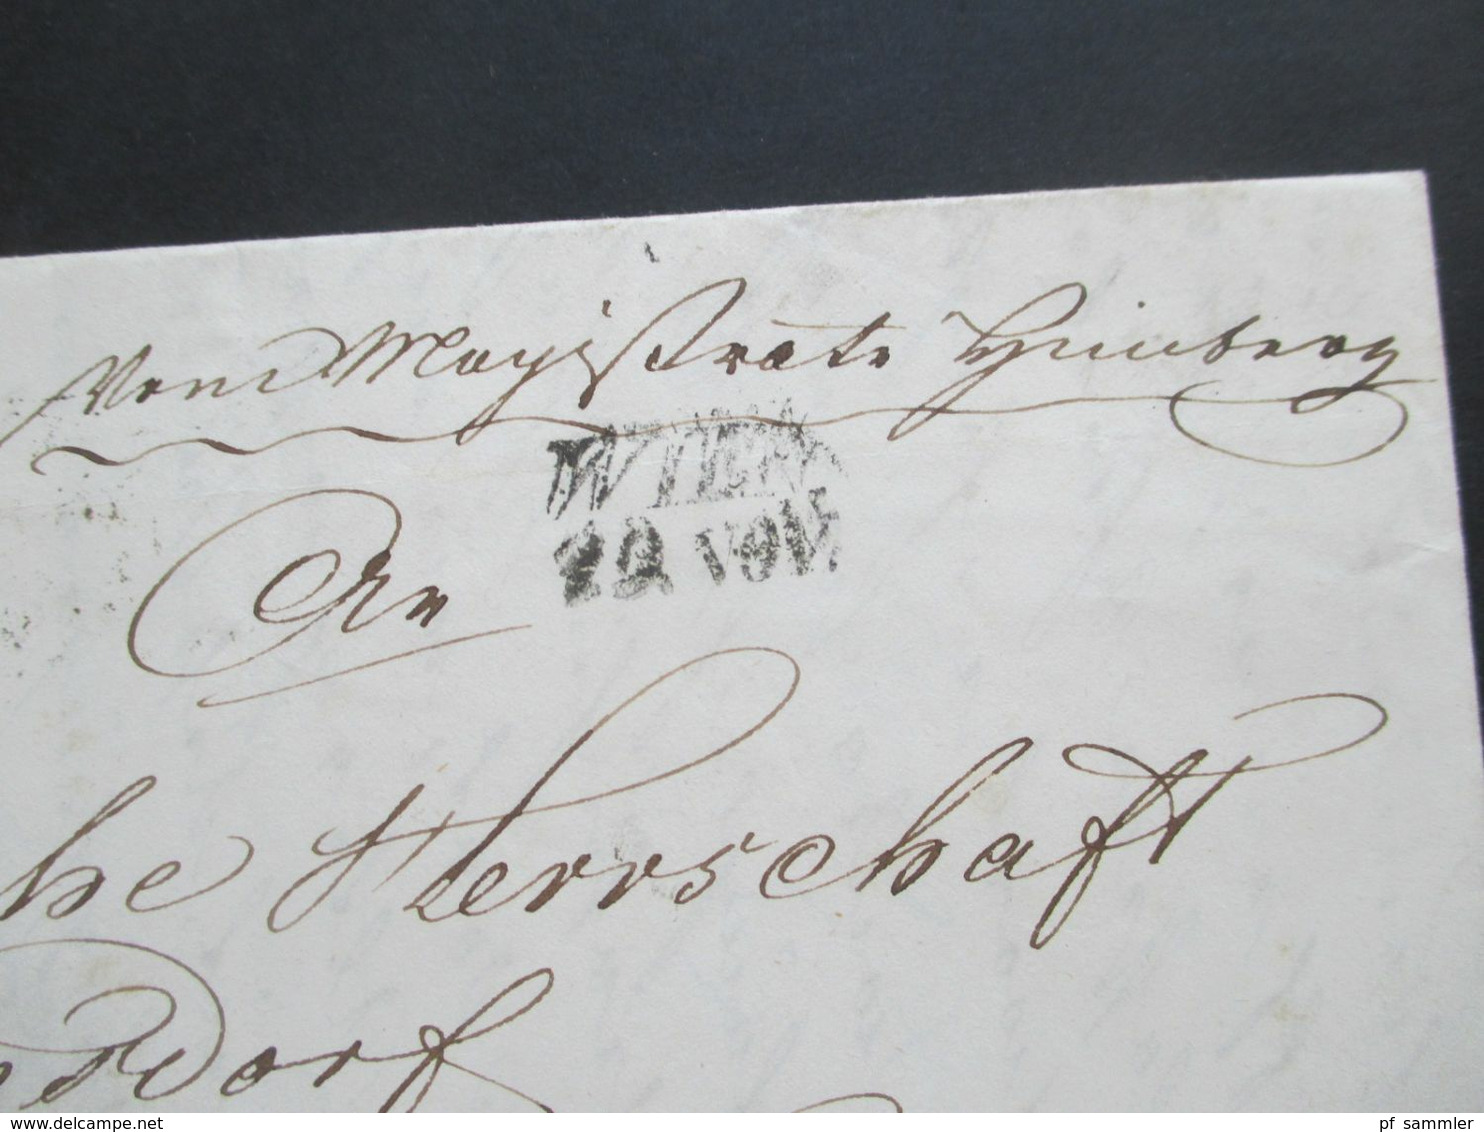 Vom Magistrate Himberg
WIEN
12 NOV.
An
he Herrschaft
sdorf
delcampe.net
pf_sammler